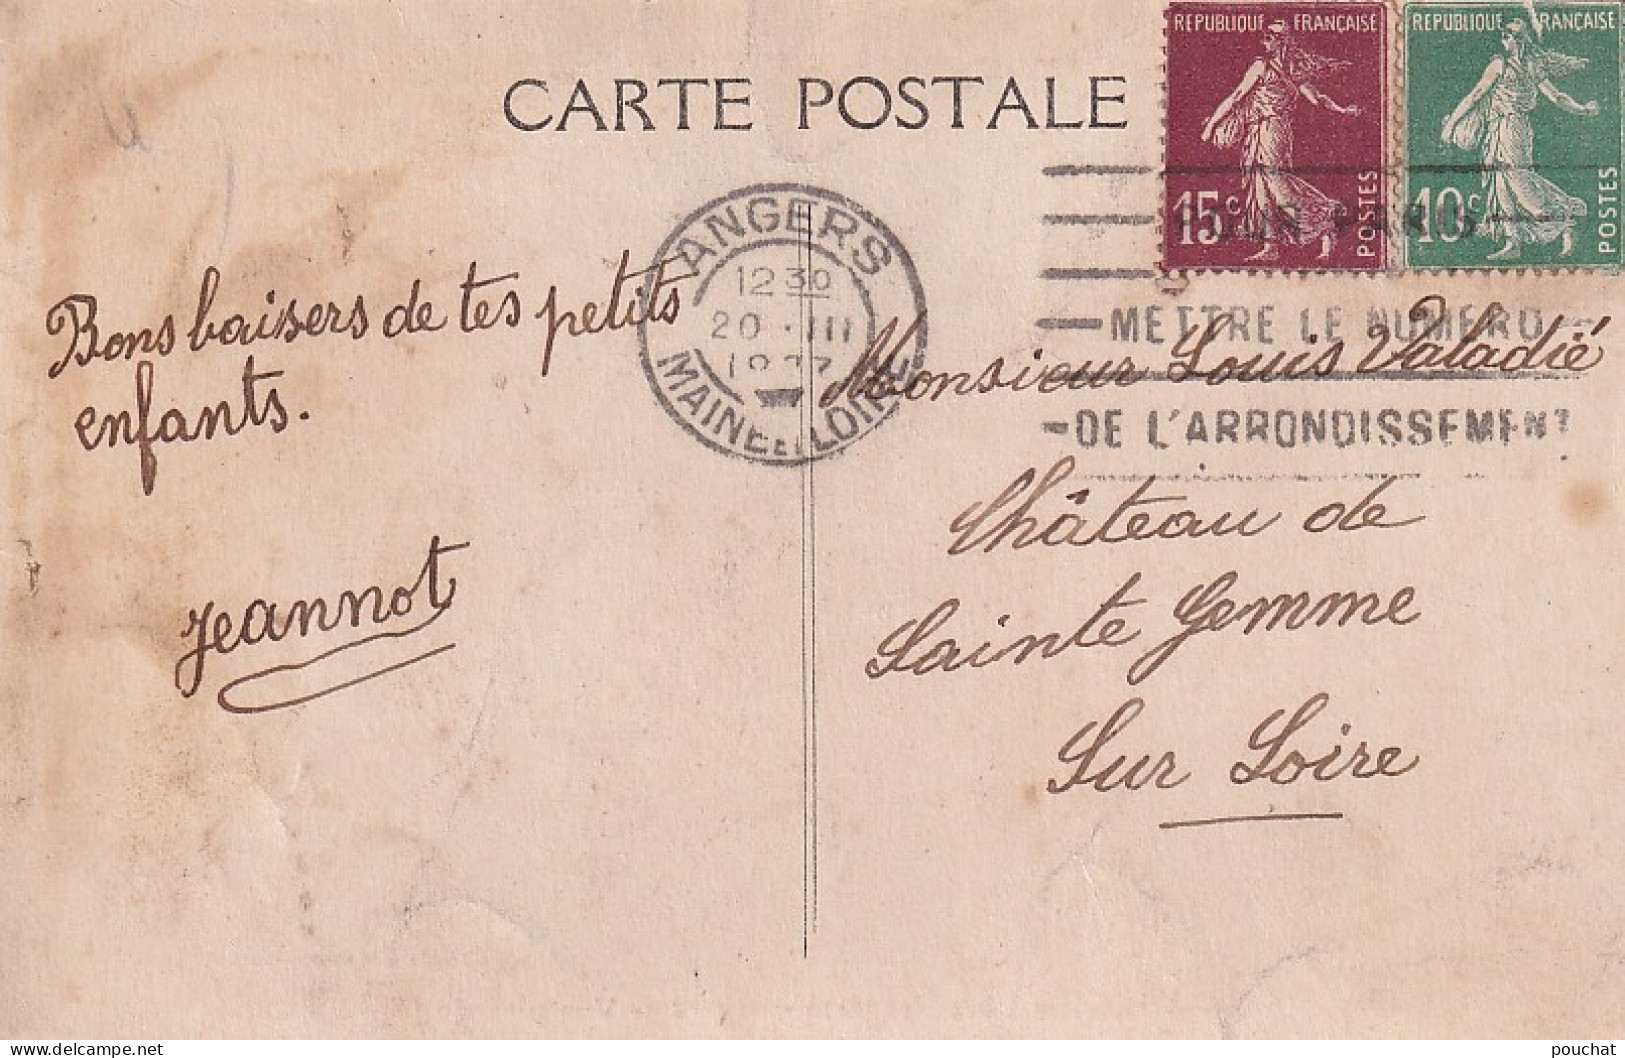 REPUBLIQUE FRANÇAISE
15c
POSTES
REPUBLIQUE FRANÇAISE
10c
POSTES
CARTE POSTALE
ANGERS
12 30
20 · III
MAINE ET LOIRE
POUR PARIS
METTRE LE NUMERO
DE L'ARRONDISSEMENT
Bons baisers de tes petits
enfants.
Jeannot
Monsieur Louis Valadié
Château de
Sainte Gemme
Sur Loire
pouchat